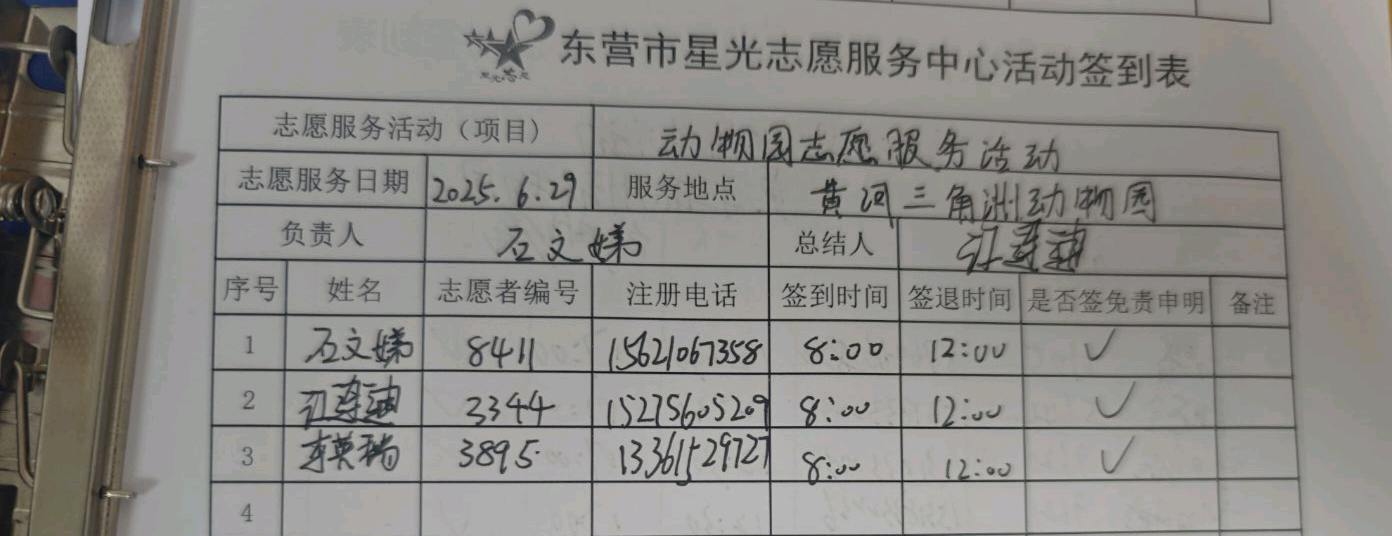 东营市星光志愿服务中心活动签到表
志愿服务活动（项目） 动物园志愿服务活动
志愿服务日期 2025.6.29 服务地点 黄河三角洲动物园
负责人 石文娣 总结人
序号 姓名 志愿者编号 注册电话 签到时间 签退时间 是否签免责申明 备注
1 石文娣 8411 15621067358 8:00 12:00 ✓
2 3344 15275605209 8:00 12:00 ✓
3 3895 13361529727 8:00 12:00 ✓
4